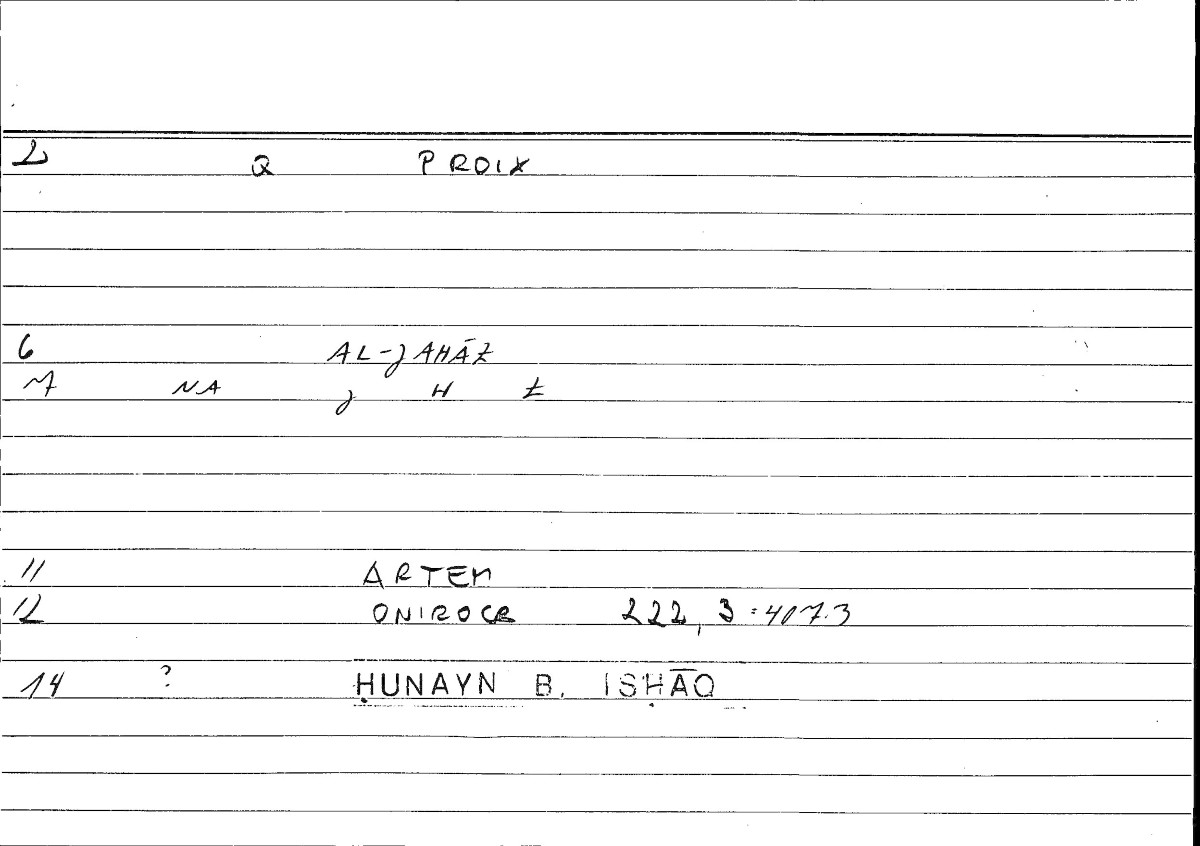 2 Q PROIX
6 AL-JAHĀZ
7 NA J H Z
11 ARTEM
12 ONIROCR 222, 3 = 407.3
14 ? ḤUNAYN B. ISḤĀQ